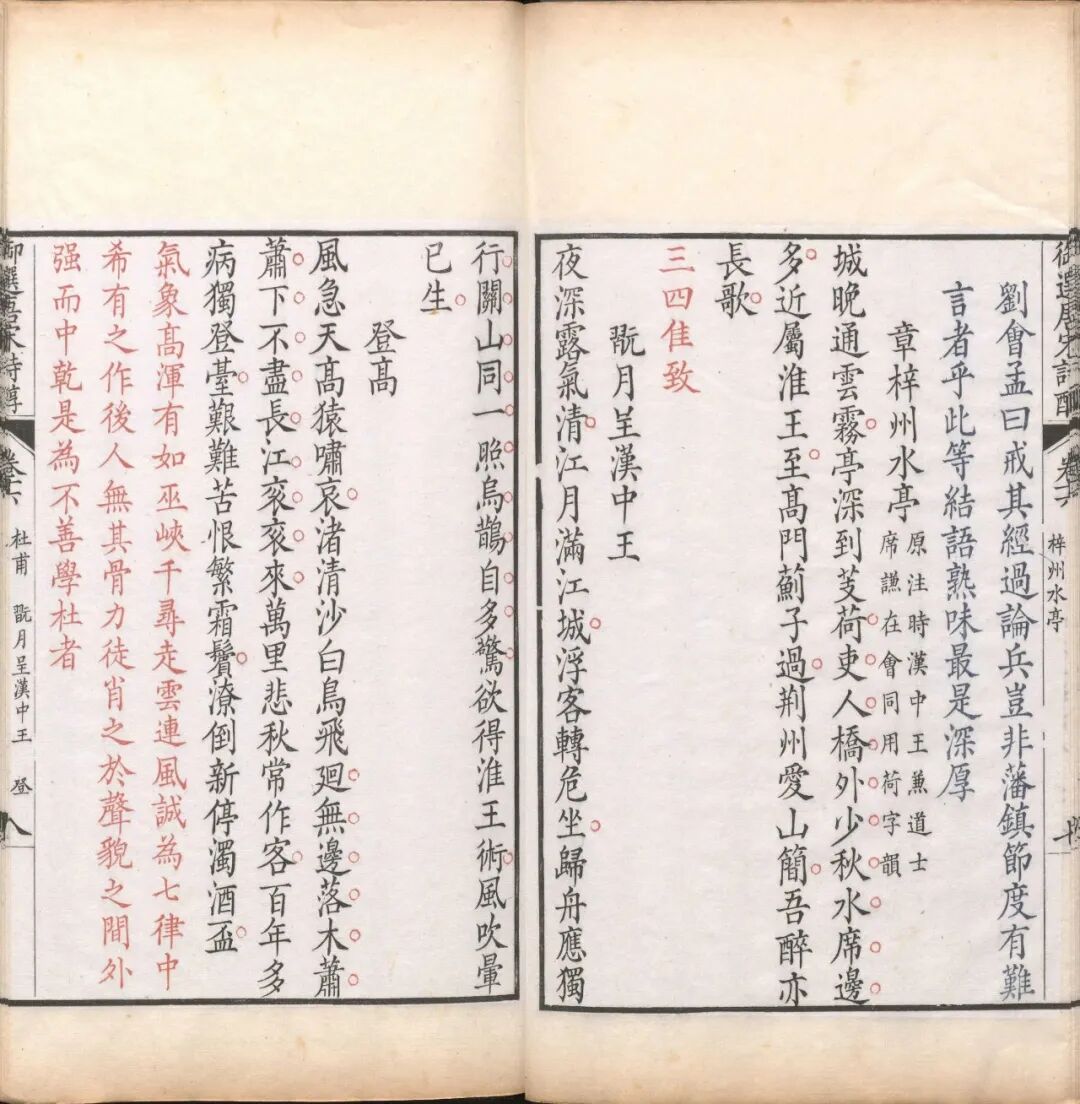 梓州水亭
劉會孟曰戒其經過論兵豈非藩鎮節度有難
言者乎此等結語熟味最是深厚
章梓州水亭
原注時漢中王兼道士
席謙在會同用荷字韻
城晚通雲霧亭深到芰荷吏人橋外少秋水席邊
多近屬淮王至髙門薊子過荆州愛山簡吾醉亦
長歌
三四佳致
翫月呈漢中王
夜深露氣清江月滿江城浮客轉危坐歸舟應獨
行關山同一照烏鵲自多驚欲得淮王術風吹暈
已生
登髙
風急天髙猿嘯哀渚清沙白鳥飛廻無邊落木蕭
蕭下不盡長江衮衮來萬里悲秋常作客百年多
病獨登臺艱難苦恨繁霜鬢潦倒新停濁酒盃
氣象髙渾有如巫峽千尋走雲連風誠為七律中
希有之作後人無其骨力徒肖之於聲貌之間外
强而中乾是為不善學杜者
御選唐宋詩醇 卷十六 杜甫 翫月呈漢中王 登 八